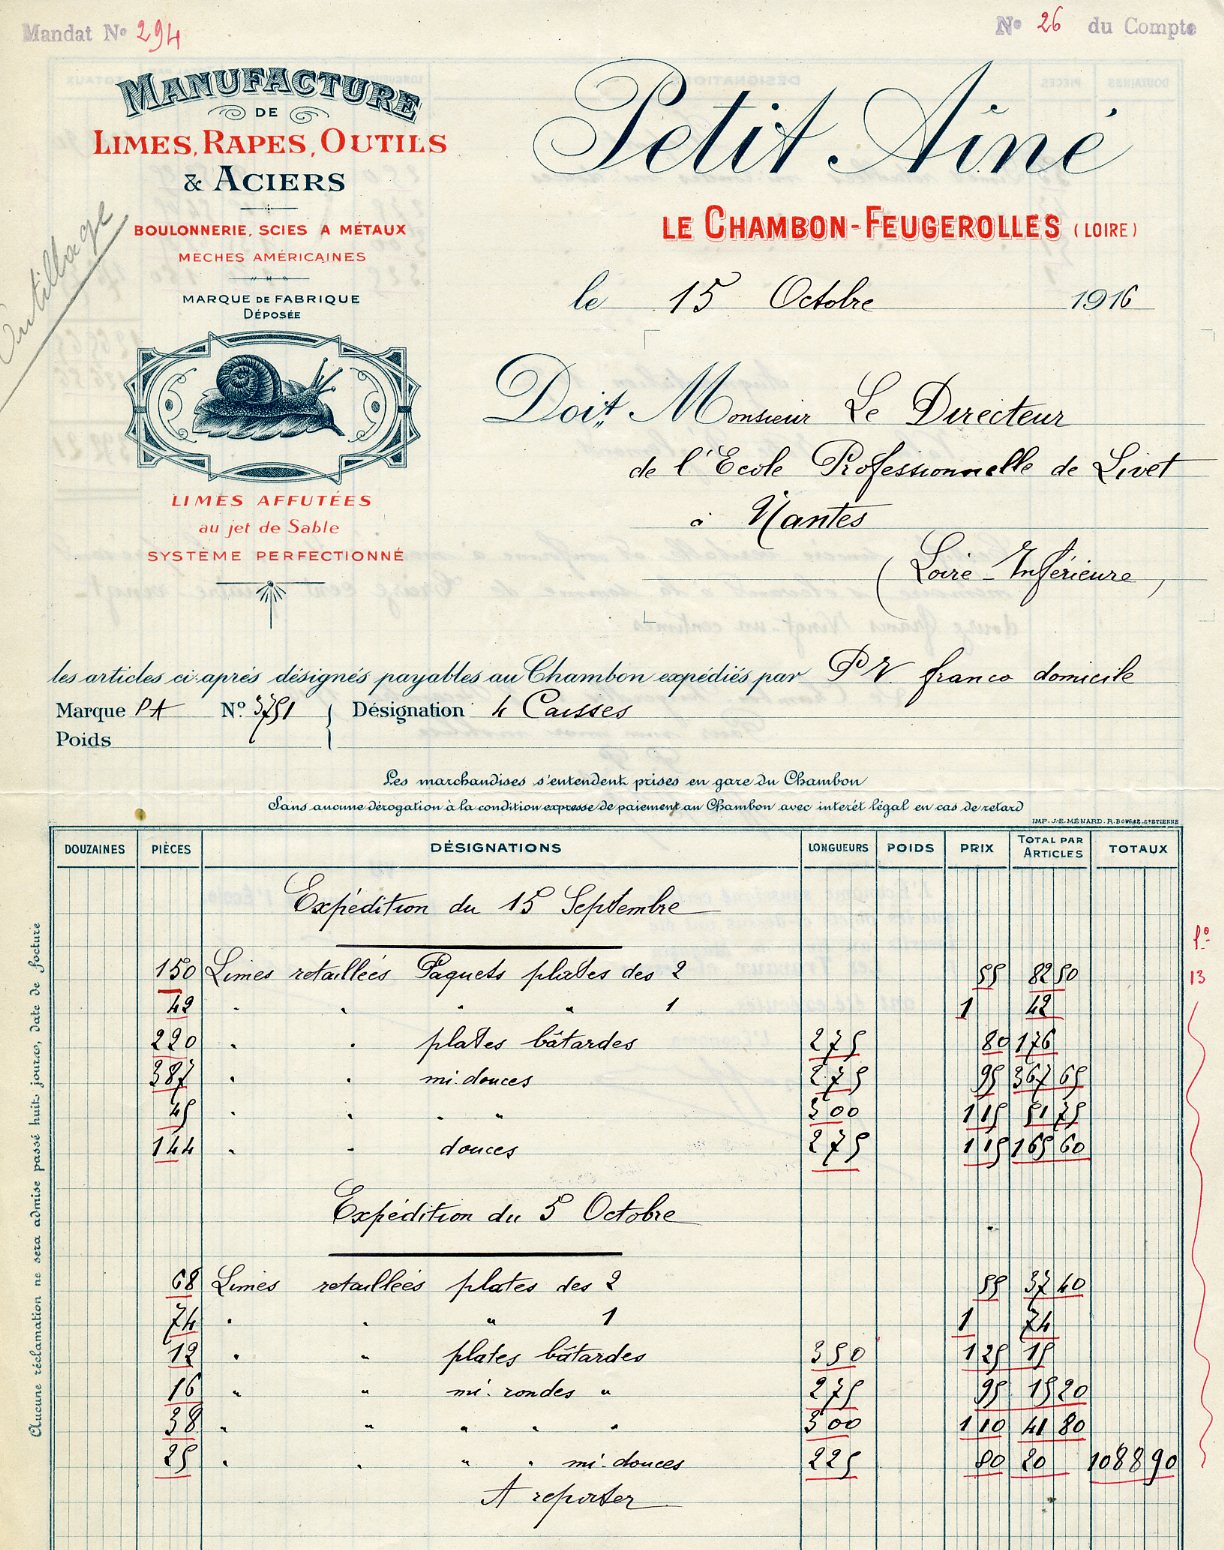 Mandat No 294
No 26 du Compte
MANUFACTURE
DE
LIMES, RAPES, OUTILS
& ACIERS
BOULONNERIE, SCIES A MÉTAUX
MECHES AMÉRICAINES
MARQUE DE FABRIQUE
DÉPOSÉE
LIMES AFFUTÉES
au jet de Sable
SYSTÈME PERFECTIONNÉ
Outillage
Petit Aîné
LE CHAMBON-FEUGEROLLES (LOIRE)
le 15 Octobre 1916
Doit Monsieur Le Directeur
de l'Ecole Professionnelle de Livet
à Nantes
(Loire-Inférieure)
les articles ci-après désignés payables au Chambon expédiés par PV franco domicile
Marque PA No 3751 Désignation 4 Caisses
Poids
Les marchandises s'entendent prises en gare du Chambon
Sans aucune dérogation à la condition expresse de paiement au Chambon avec intérêt légal en cas de retard
IMP. J-E. MÉNARD. R. BOVGAZ. ST ETIENNE
DOUZAINES PIÈCES DÉSIGNATIONS LONGUEURS POIDS PRIX TOTAL PAR ARTICLES TOTAUX
Expédition du 15 Septembre
150 Limes retaillées Paquets plates des 2 55 82 50
42 " " " " 1 1 42
220 " " plates bâtardes 275 80 176
387 " " mi-douces 275 95 367 65
45 " " " " 300 1 15 51 75
144 " " douces 275 1 15 165 60
Expédition du 5 Octobre
68 Limes retaillées plates des 2 55 37 40
74 " " " 1 1 74
12 " " plates bâtardes 350 1 25 15
16 " " mi-rondes " 275 95 15 20
38 " " " " " 300 1 10 41 80
25 " " " " mi-douces 225 80 20 1088 90
A reporter
Aucune réclamation ne sera admise passé huit jours, date de facture
fo
13